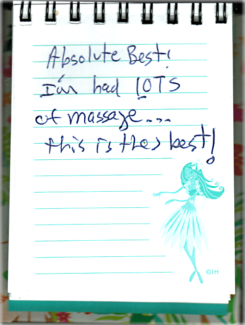 Absolute Best!
I'm had LOTS
of massage...
this is the best!
©IH